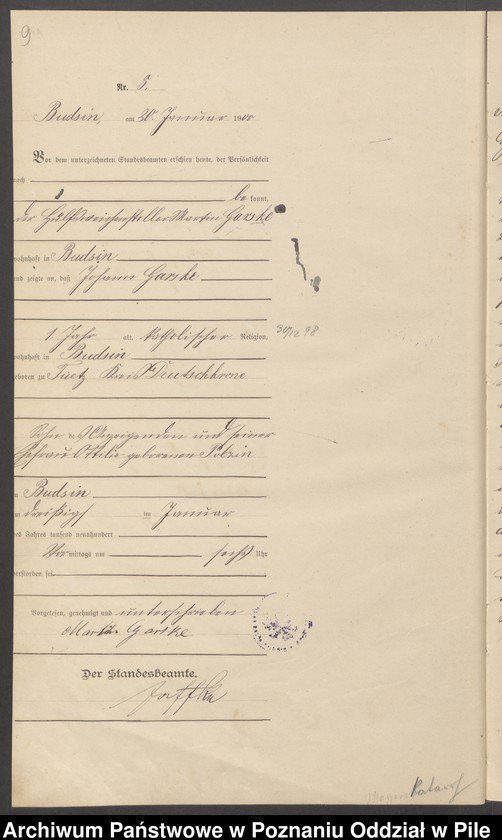 9
Nr. 5.
Budsin, am 20. Januar 1900
Vor dem unterzeichneten Standesbeamten erschien heute, der Persönlichkeit
nach
be kannt,
der Hülfsweichensteller Martin Garske
wohnhaft in Budsin
und zeigte an, daß Johann Garske
1 Jahr alt, katholischer Religion,
30/12 98
wohnhaft in Budsin
geboren zu Tuetz Kreis Deutschkrone
Sohn des Anzeigenden und seiner
Ehefrau Ottilie geborenen Polzin
zu Budsin
am dreißigs im Januar
des Jahres tausend neunhundert
Vormittags um sechs Uhr
verstorben sei
Vorgelesen, genehmigt und unterschrieben
Martin Garske
Der Standesbeamte.
Archiwum Państwowe w Poznaniu Oddział w Pile